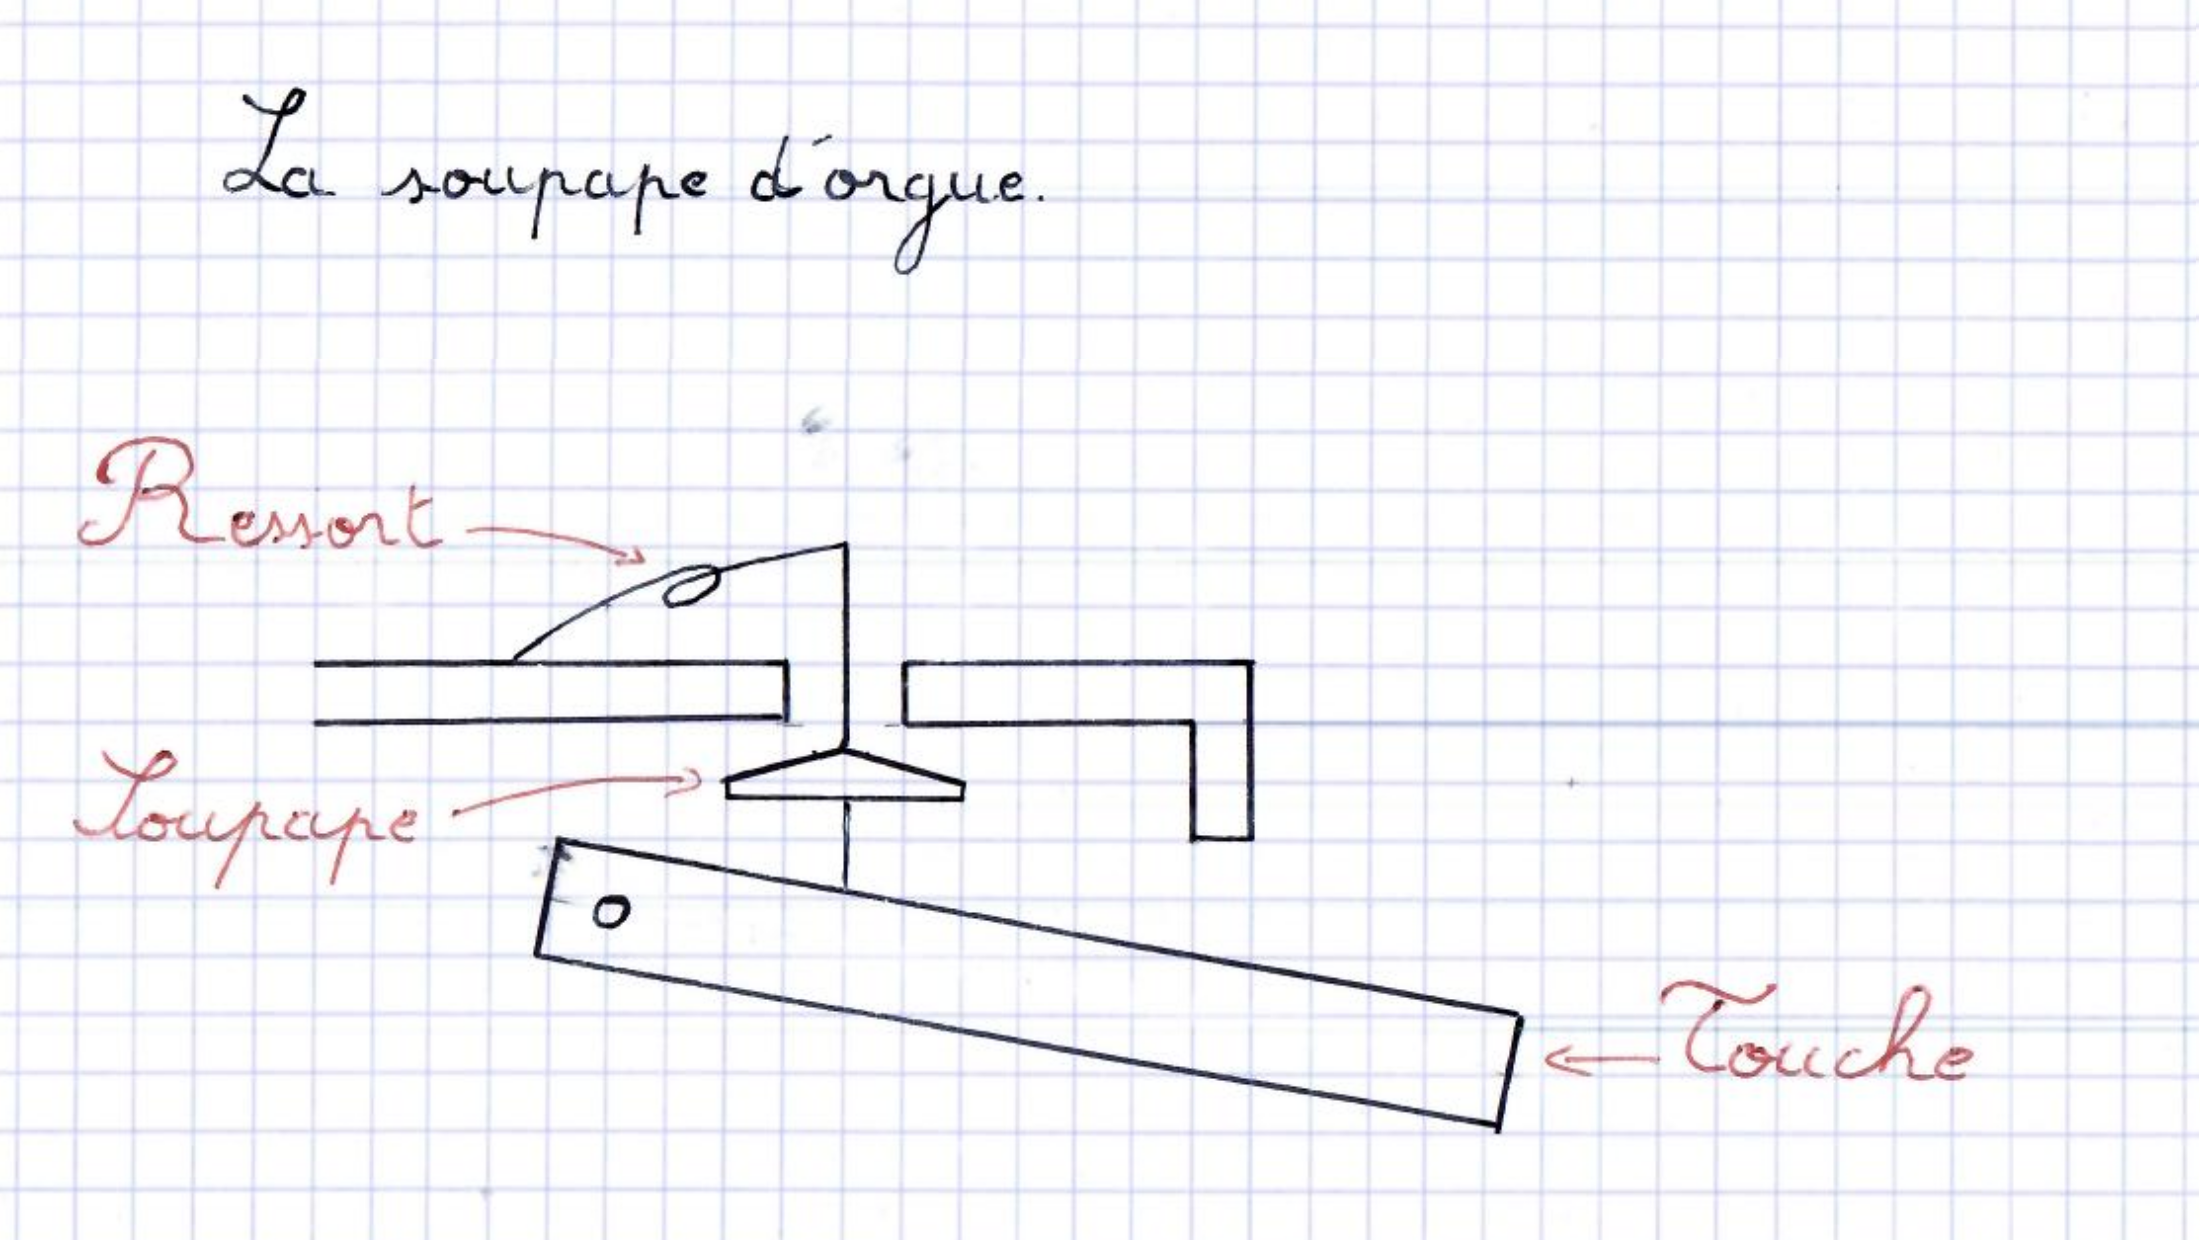 La soupape d'orgue.
Ressort
Soupape
Touche